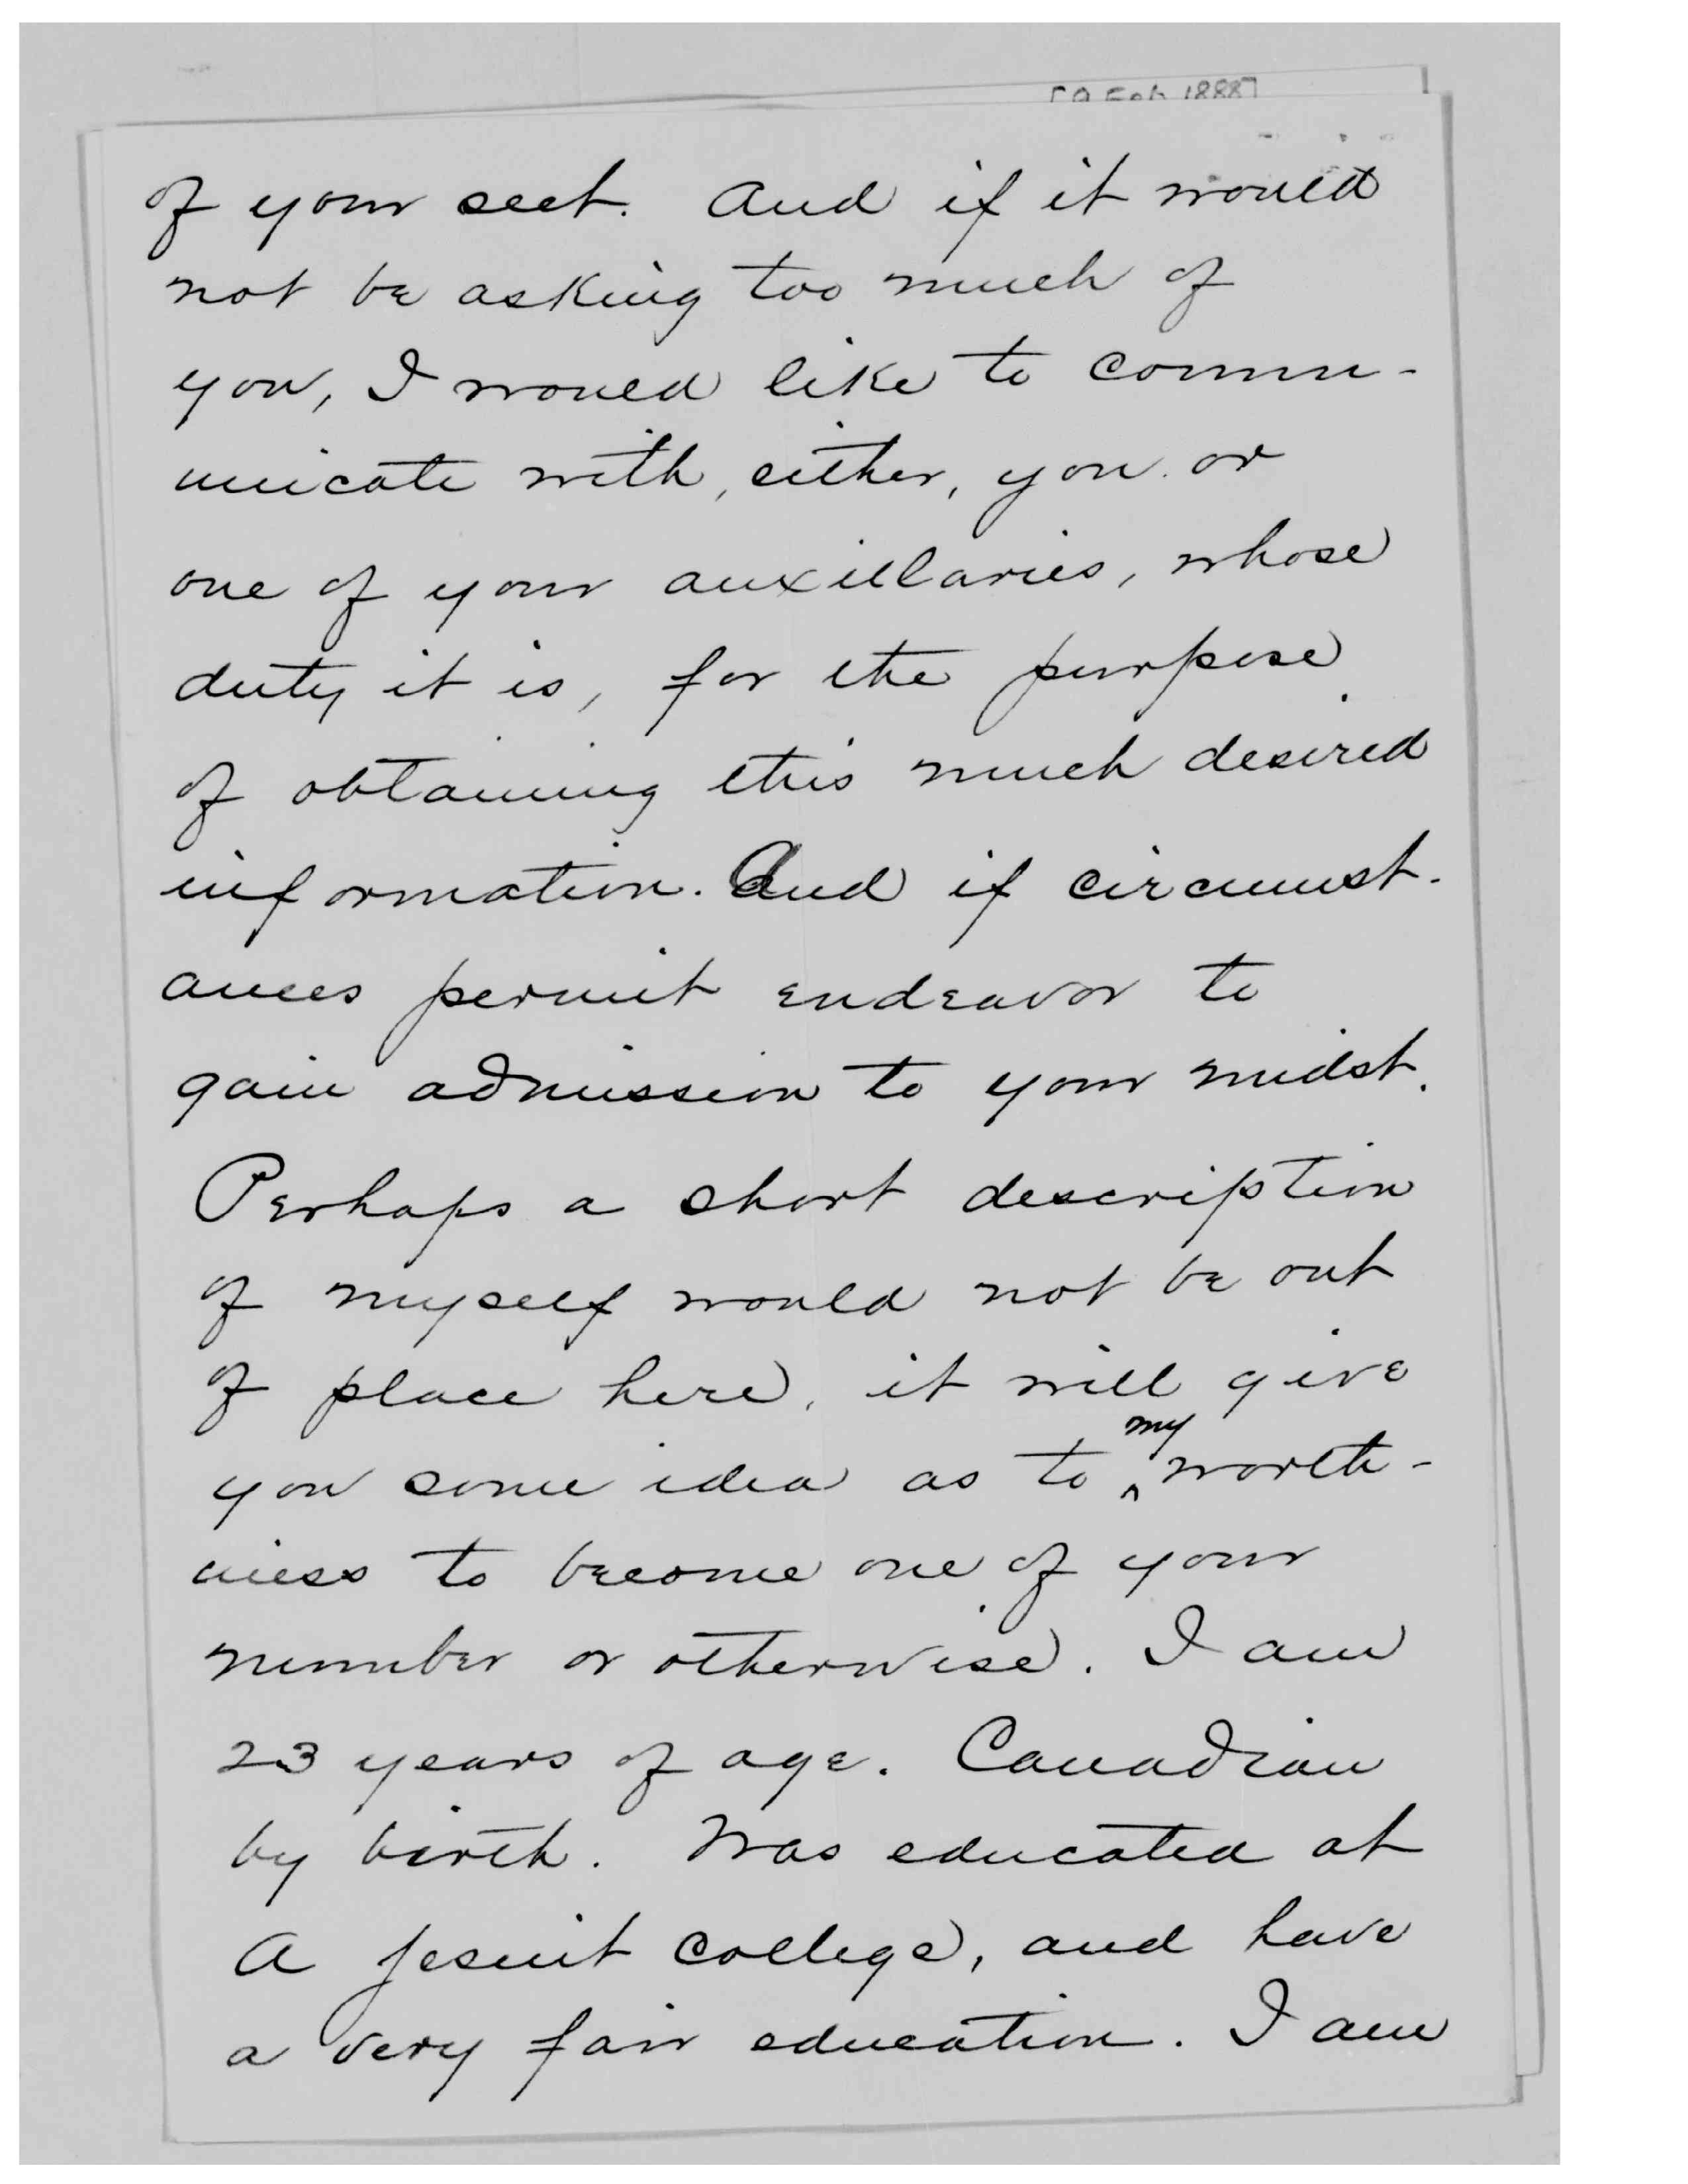 of your sect. And if it would
not be asking too much of
you, I would like to commu-
nicate with, either, you or
one of your auxillaries, whose
duty it is, for the purpose
of obtaining this much desired
information. And if circumst-
ances permit endeavor to
gain admission to your midst.
Perhaps a short description
of myself would not be out
of place here, it will give
you some idea as to my worth-
iness to become one of your
number or otherwise. I am
23 years of age. Canadian
by birth. Was educated at
a Jesuit college, and have
a very fair education. I am